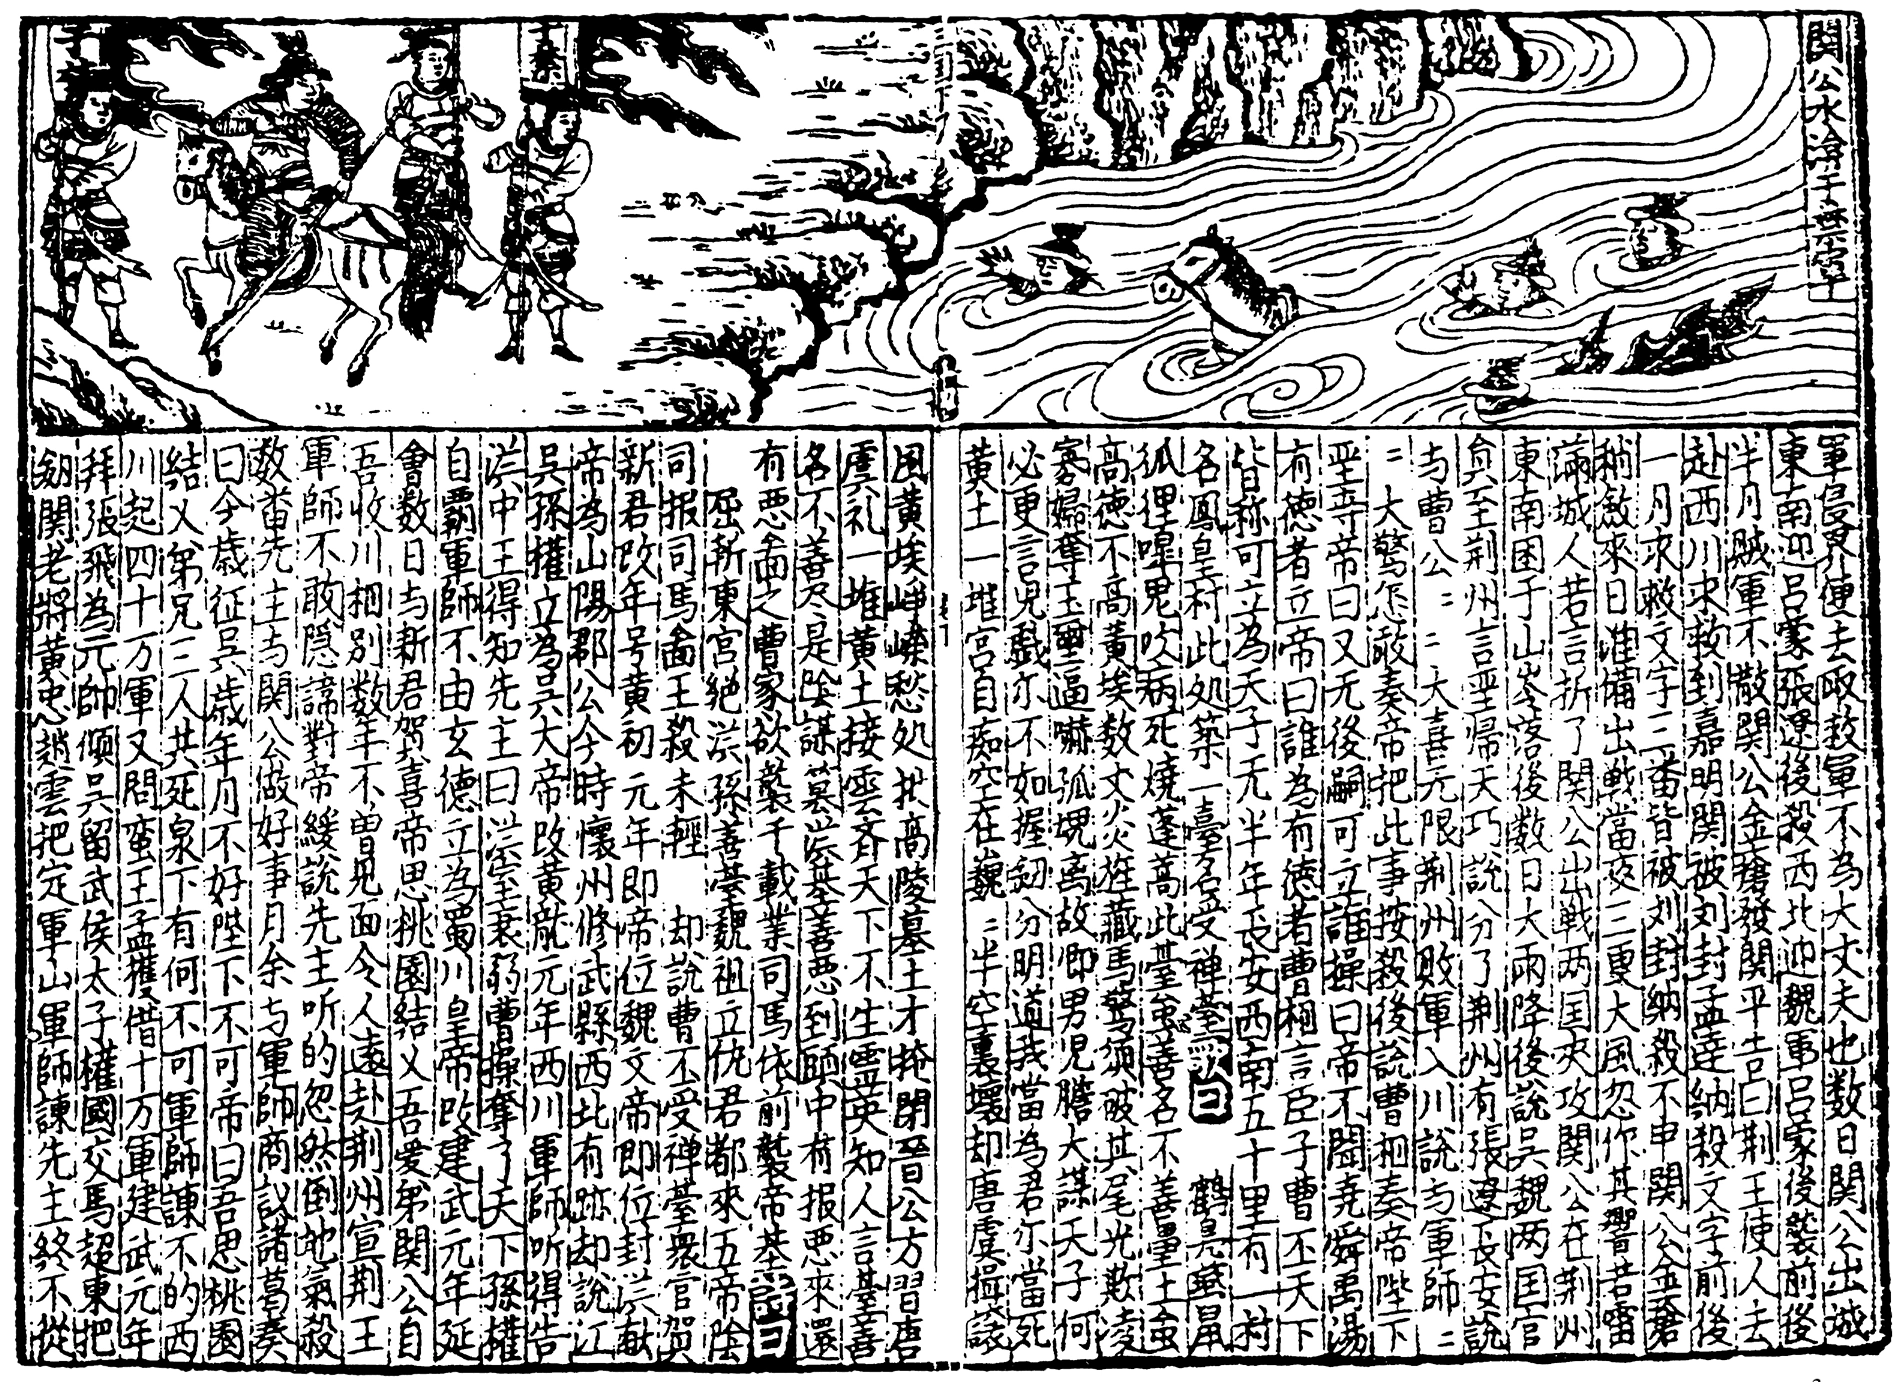 関公水渰于禁軍
軍侵界便去取救軍不為大丈夫也数日関公出城
東南迎呂蒙張遼後殺西北迎魏軍呂蒙後襲前後
半月賊軍不散関公金瘡發関平告曰荆王使人去
赴西川求救到嘉明関被刘封孟達納殺文字前後
一月求救文字三番皆被刘封納殺不申関公金瘡
稍癒來日准備出戦當夜三更大風忽作其響若雷
滿城人若言折了関公出戦两国夾攻関公在荆州
東南困于山岺落後数日大雨降後說吳魏两国官
員至荆州言聖帰天巧說分了荆州有張遼長安說
与曹公二二大喜无限荆州敗軍入川說与軍師二
二大驚怎敢奏帝把此事按殺後說曹相奏帝陛下
聖寺帝曰又无後嗣可立誰操曰帝不聞堯舜禹湯
有徳者立帝曰誰為有徳者曹相言臣子曹丕天下
皆称可立為天子无半年長安西南五十里有一村
名鳳皇村此処築一臺名受禅臺詩曰
狐狸嘷鬼吹病死燒蓬蒿此臺虽善名不善壘土虽
高徳不高黄埃数丈火旌藏馬驚須破其尾光欺凌
寡婦奪玉璽逼嚇孤 离故即男児膽大謀天子何
必更言児戯亦不如握劒分明道我當為君尔當死
黄土一堆宮自痴空在魏二半空裏壞却唐虞揖讓
風黄埃峨嶸愁処拱高陵墓土才掩閉晋公方習唐
虞礼一堆黄土接雲斉天下不生霊英知人言臺善
名不善尽是陰謀篡漢基善悪到頭中有报悪來還
有悪面之曹家欲襲千載業司馬依前襲帝基詩曰
屈斬東宮絶漢孫善臺魏祖立仇君都來五帝陰
司报司馬侖王殺未輕 却說曹丕受禅臺衆官賀
新君改年号黄初元年即帝位魏文帝即位封漢献
帝為山陽郡公今時懷州修武縣西北有跡却說江
吳孫權立為吳大帝改黄龍元年西川軍師听得告
漢中王得知先主曰漢室衰弱曹操奪了天下孫權
自覇軍師不由玄徳立為蜀川皇帝改建武元年延
會数日与新君賀喜帝思桃園結义吾愛弟関公自
吾收川相別数年不曽見面令人遠赴荆州宣荆王
軍師不敢隠諱對帝緩說先主听的忽然倒地氣殺
数畨先主与関公做好事月余与軍師商議諸葛奏
曰今歳征吳歳年月不好陛下不可帝曰吾思桃園
結义弟兄三人共死泉下有何不可軍師諫不的西
川起四十万軍又問蛮王孟獲借十万軍建武元年
拜張飛為元帥傾吳留武侯太子權國交馬超東把
劒関老將黄忠趙雲把定軍山軍師諫先主終不從